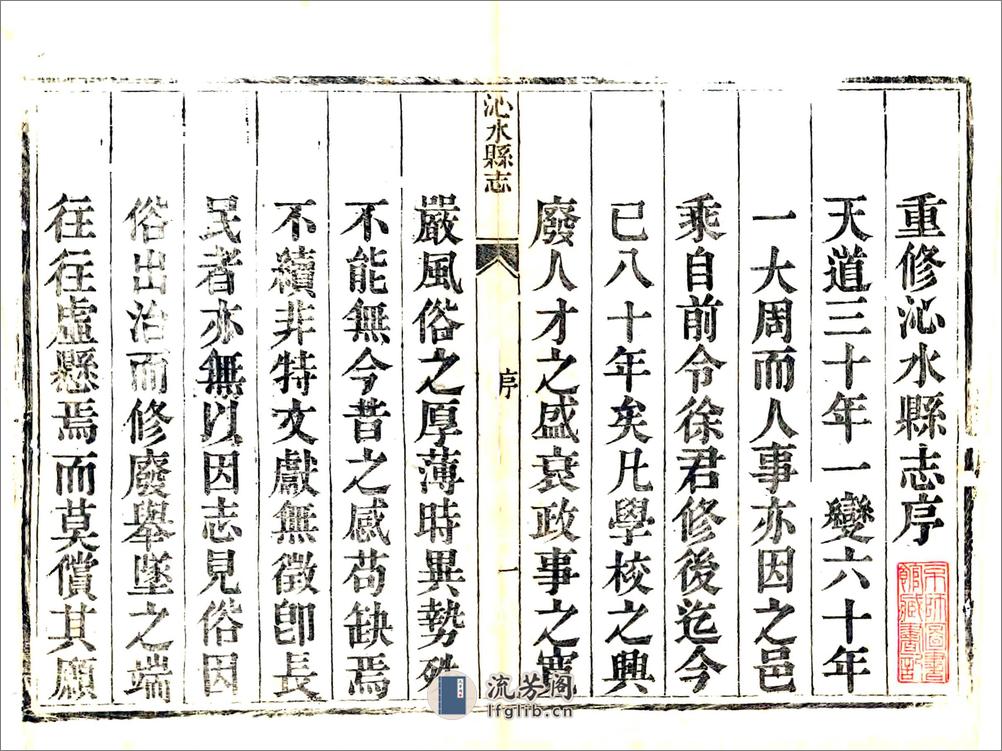 重修沁水縣志序
京師圖書
館藏書記
天道三十年一變六十年
一大周而人事亦因之邑
乘自前令徐君修後迄今
已八十年矣凡學校之興
廢人才之盛衰政事之寬
沁水縣志 序 一
嚴風俗之厚薄時異勢殊
不能無今昔之感苟缺焉
不續非特文獻無徵即長
民者亦無以因志見俗因
俗出治而修廢舉墜之端
往往虛懸焉而莫償其願
流芳阁
lfglib.cn